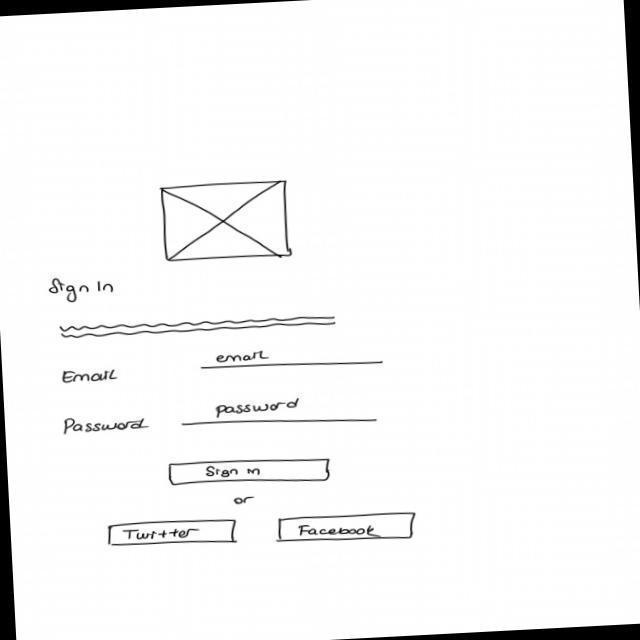 Sign In
Email email
Password password
Sign in
or
Twitter Facebook